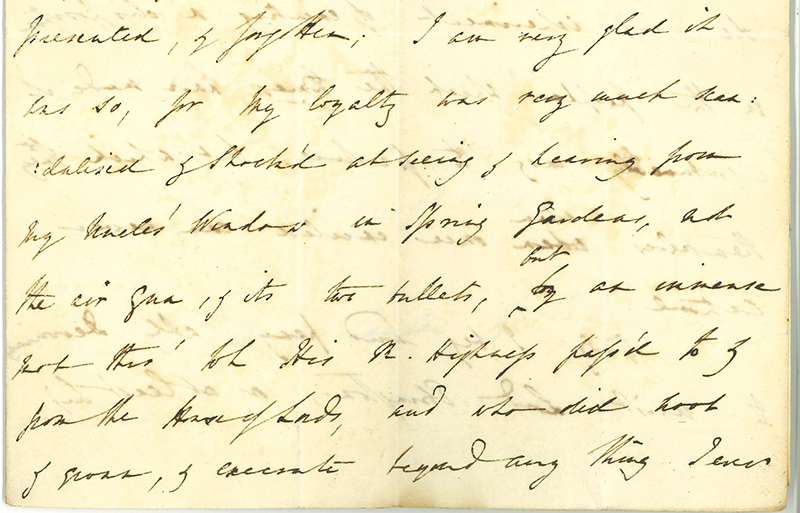 presented, & forgotten; I am very glad it
was so, for my loyalty was very much scan:
:dalised & Shock'd at seeing & hearing from
my Uncles' Window in Spring Gardens, not
the air Gun, & its two bullets, but
by an immense
mob thro' wh His R. Highness pass'd to &
from the House of Lords, and who did hoot
& groan, & execrate beyond any thing I ever